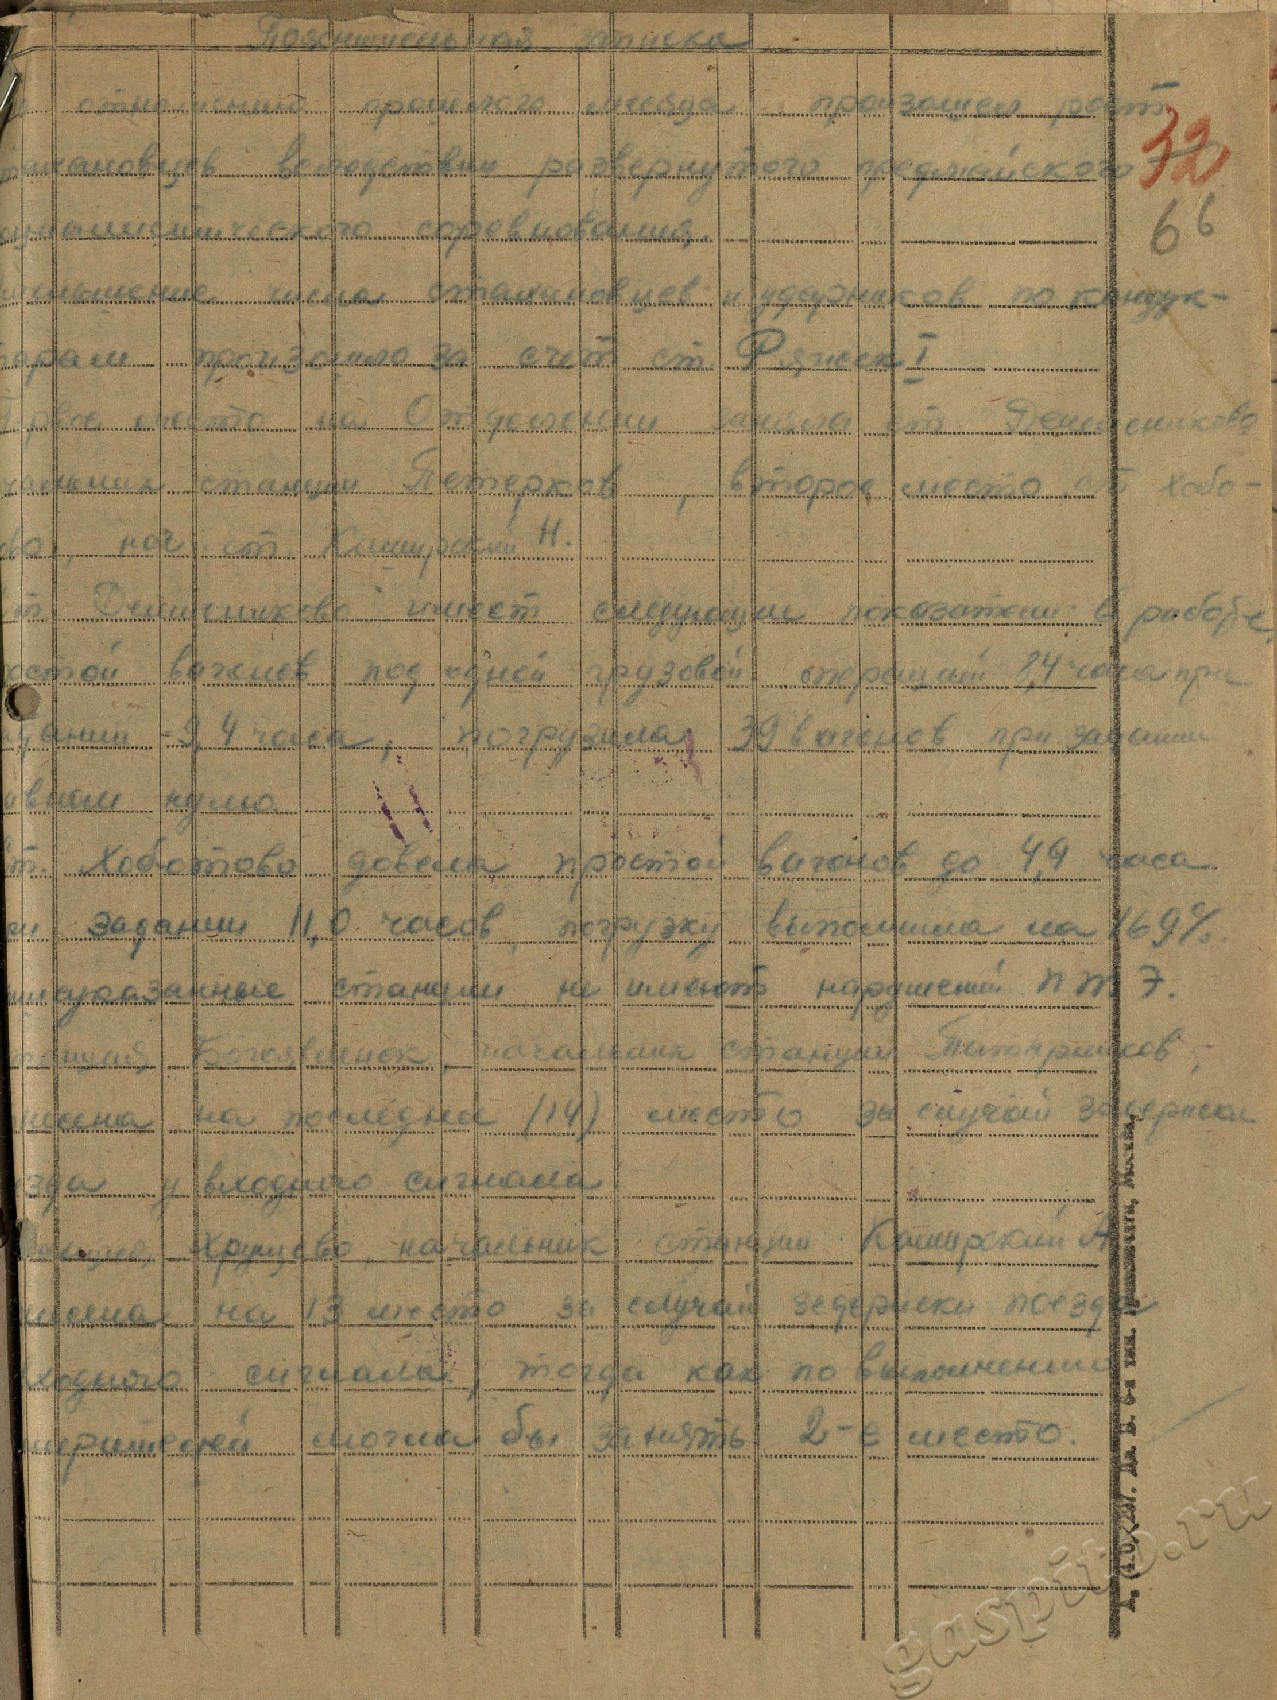 Пояснительная записка
отношению прошлого месяца произошел рост
32
66
стахановцев вследствии развернутого предмайского
социалистического соревнования.
уменьшение числа стахановцев и ударников по кондук-
торам произошло за счет ст. Ряжск I
первое место на Отделении заняла ст.
начальник станции Петерков, второе место ст. Хобо-
тово, нач. ст. Каширский Н.
ст. имеет следующие показатели в работе,
простой вагонов под одной грузовой операцией 2,4 часа при
задании - 9,4 часа, погрузила 39 вагонов при задании
равном нулю.
ст. Хоботово довела простой вагонов до 4,9 часа.
при задании 11,0 часов, погрузку выполнила на 169%.
вышеуказанные станции не имеют нарушений ПТЭ.
станция Богоявленск, начальник станции
на последнее (14) место за случай задержки
поезда у входного сигнала
станция Хрущево, начальник станции Каширский А
на 13 место за случай задержки поезда
входного сигнала, тогда как по выполнению
измерителей могла бы занять 2-е место.
gaspito.ru